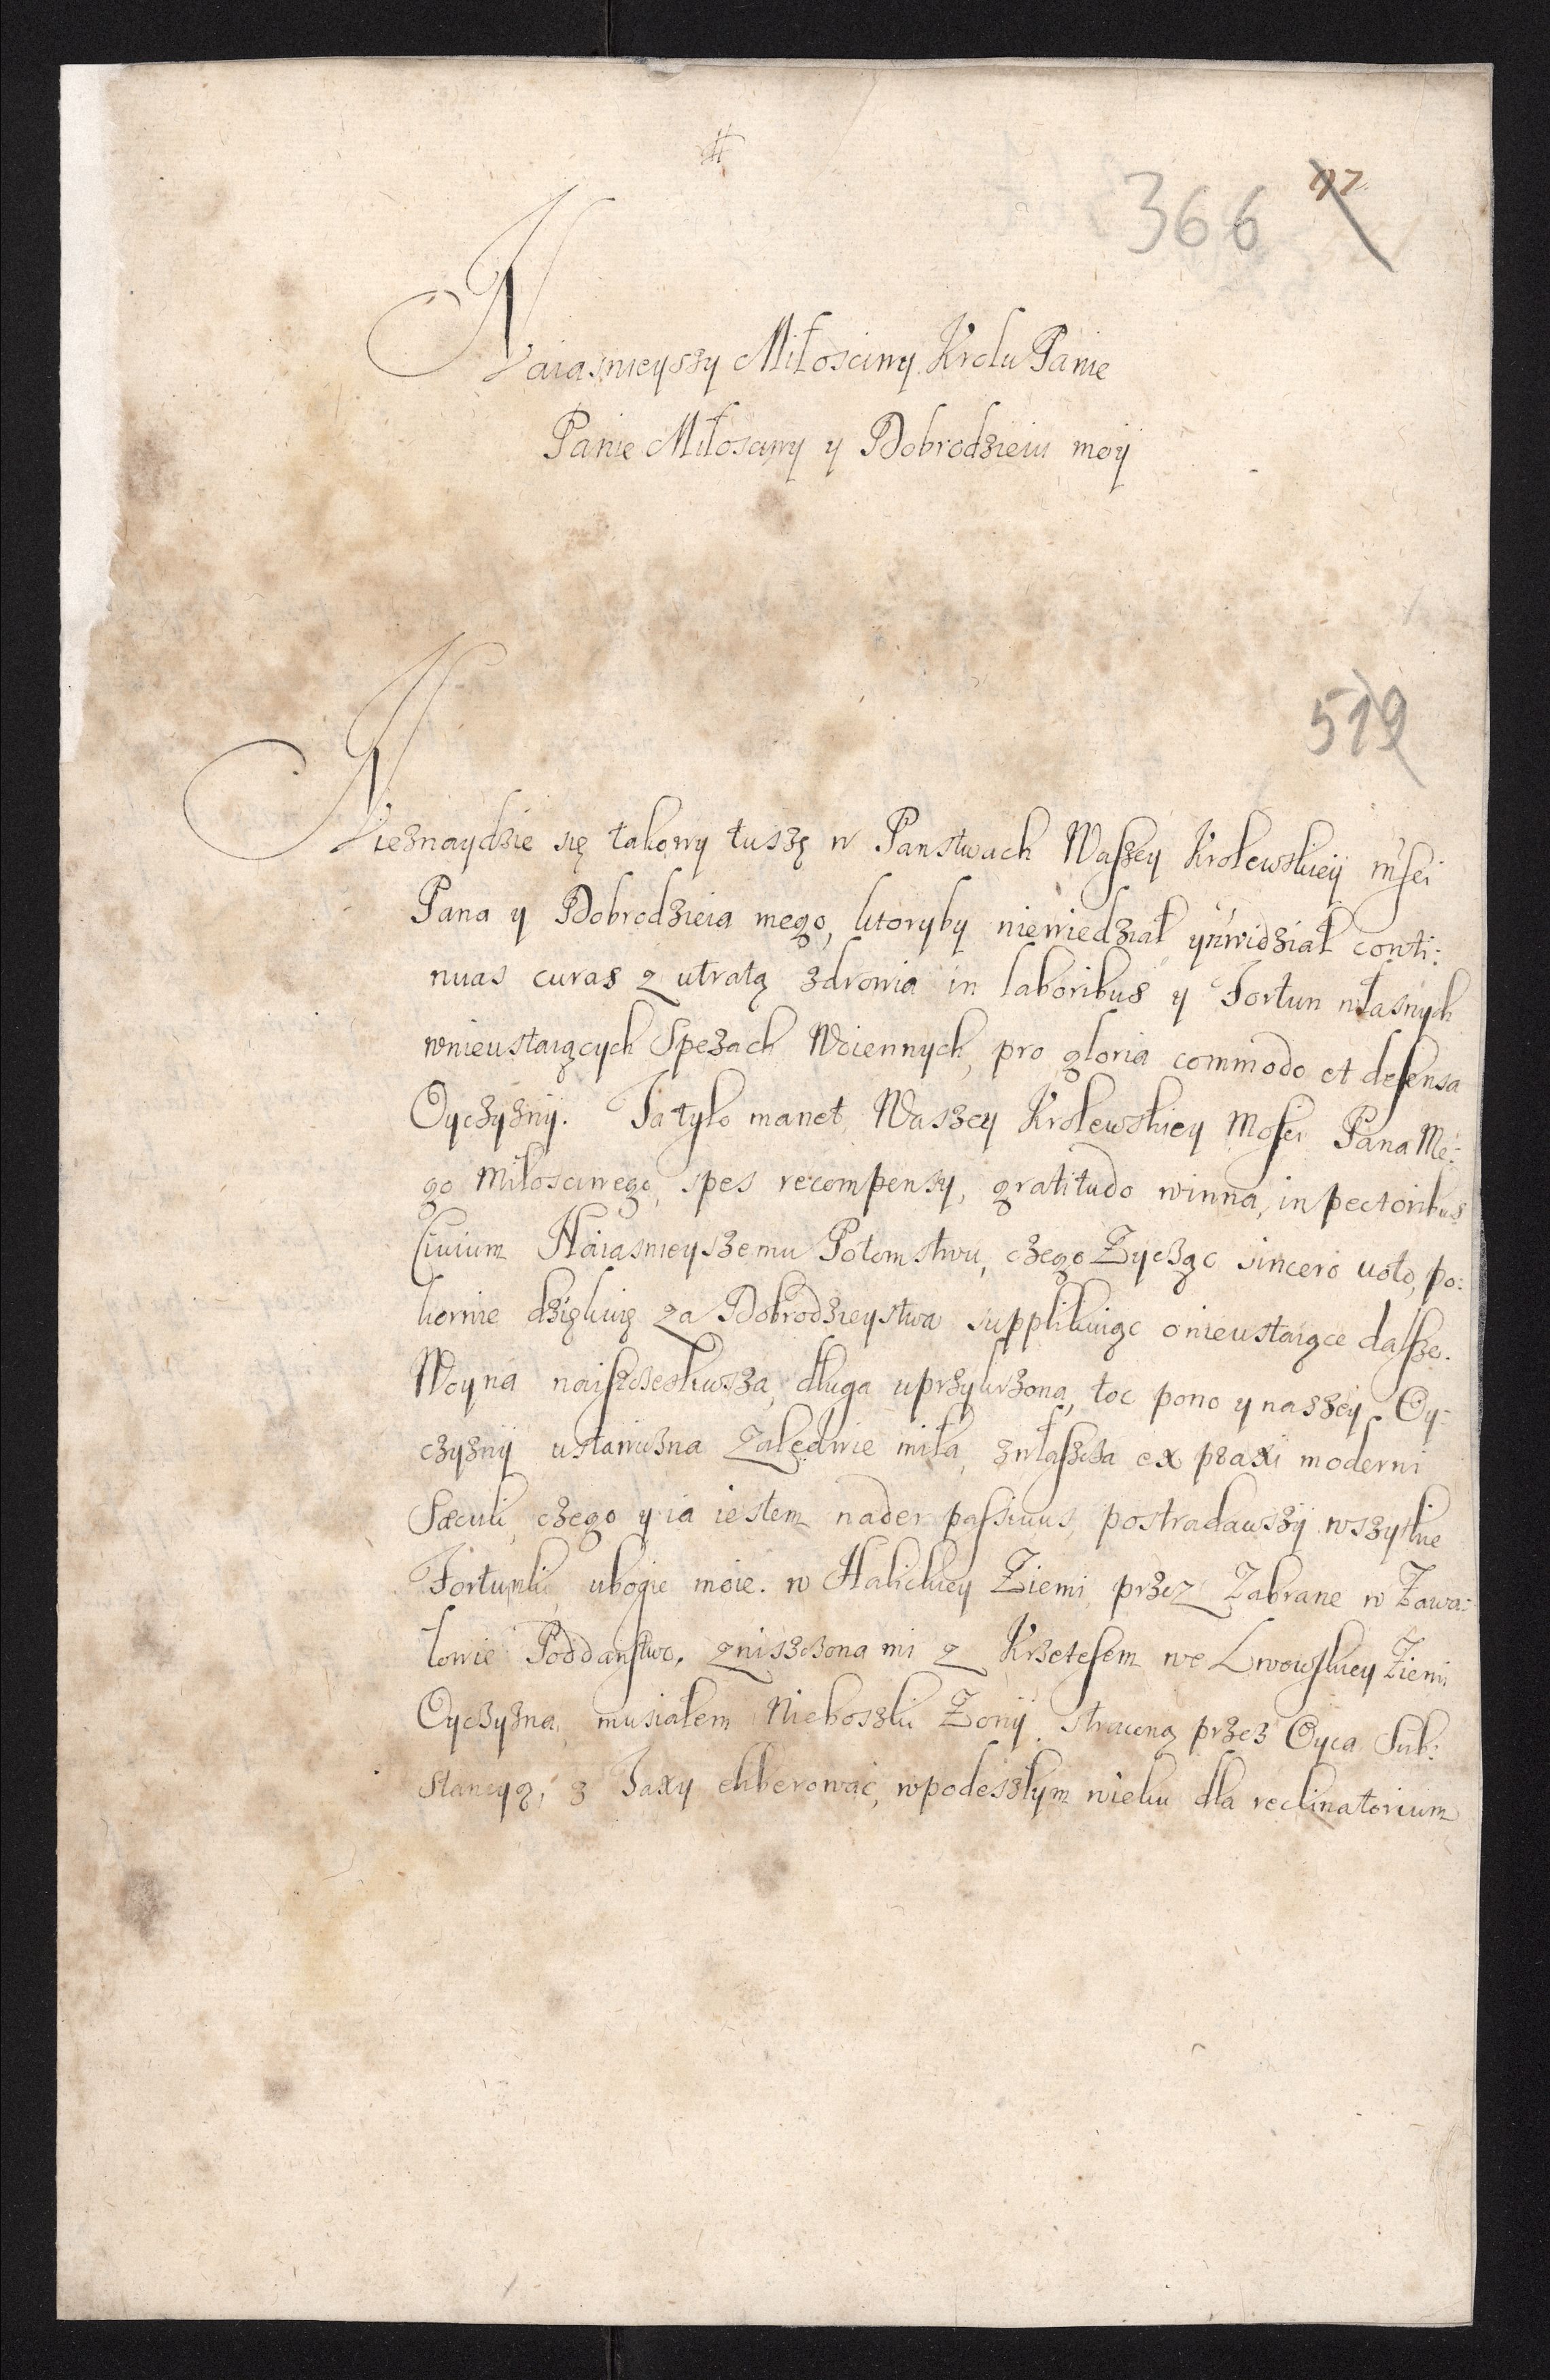 366 97
Naiasnieyszy Miłosciwy Krolu Panie
Panie Miłosciwy y Dobrodzieiu moy
519
Nieznaydzie się takowy tuszę w Panstwach Waszey Krolewskiey Msci
Pana y Dobrodzieia mego, ktoryby niewiedział yniewidział conti:
nuas curas z utratą zdrowia in laboribus y Fortun własnych
wnieustaiących Spezach Woiennych, pro gloria commodo et defensa
Oyczyzny. Ja tylo manet Waszey Krolewskiey Mosci Pana Me:
go Miłosciwego, spes recompensy, gratitudo winna, in pectoribus
Civium Naiasnieyszemu Potomstwu, czego Zycząc sincero voto, po:
kornie dziękuię za Dobrodzieystwa supplikuiąc o nieustaiące dalsze.
Woyna naiszczesliwsza, długa uprzykrzona, toc pono y naszey Oy:
czyzny ustawiczna Zaledwie miła, zwłaszcza ex praxi moderni
Sæculi, czego y ia iestem nader passivus, postradawszy wszytkie
Fortunki ubogie moie. w Halickiey Ziemi, przez Zabrane w Zawa:
łowie Poddanstwo. zniszczona mi z Krzetesem we Lwowskiey Ziemi
Oyczyzna, musiałem Nieboszki Zony straconą przez Oyca Sub:
stancyą, z Taxy eliberować, wpodeszłym wieku dla reclinatorium